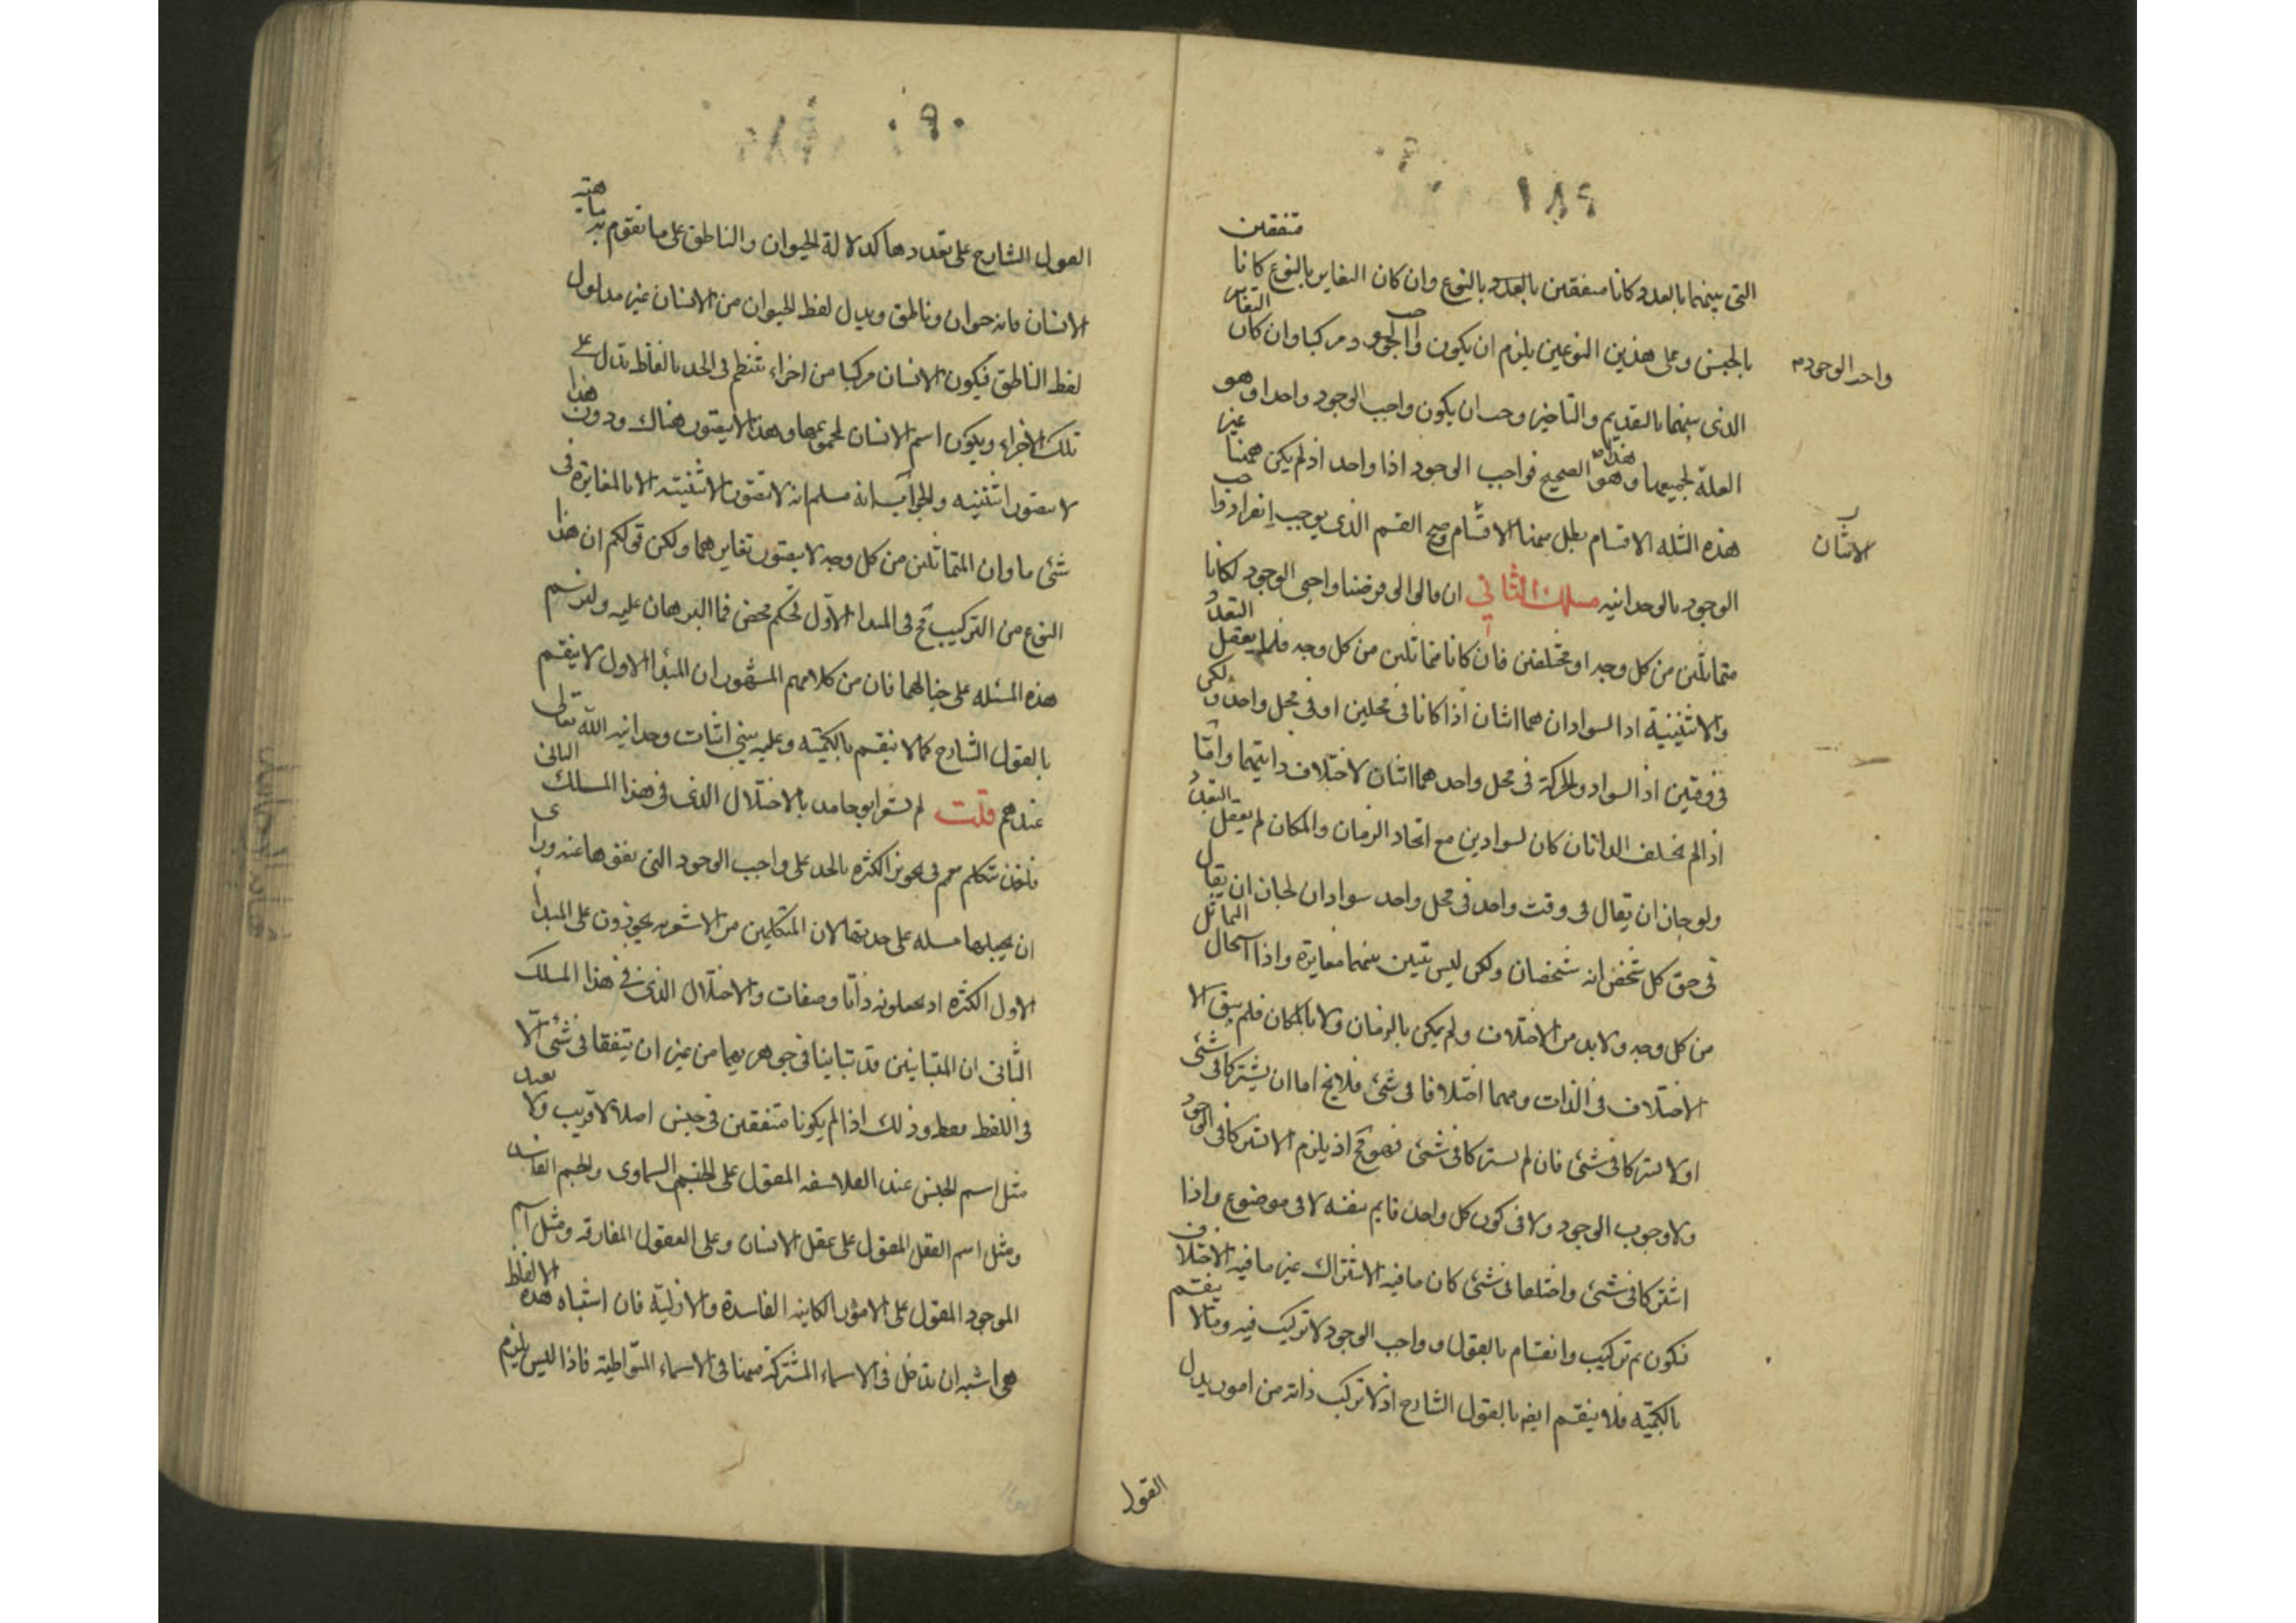 ١٨٩
متفقين
التى بينهما بالعدد كانا متفقين بالعدد بالنوع وان كان التغاير بالنوع كانا
بالجنس وعلى هذين النوعين يلزم ان يكون واجب الوجود مركبا وان كان التغاير
واحد الوجود
الذى بينهما بالتقديم والتاخير وجب ان يكون واجب الوجود واحدا وهو
العلة لجميعها وهذا هو الصحيح فواجب الوجود اذا واحد اذ لم يكن ههنا غير
هذه الثلثه الاقسام بطل منها الاقسام وصح القسم الذى يوجب انفراد واجب
الاثنان
الوجود بالوحدانيه مسلك الثانى ان قالوا لو فرضنا واجبى الوجود لكانا
متماثلين من كل وجه او مختلفين فان كانا متماثلين من كل وجه فلا يعقل التعدد
والاثنينية اذ السوادان هما اثنان اذا كانا فى محلين او فى محل واحد ولكن
فى وقتين اذ السواد والحركة فى محل واحد هما اثنان لاختلاف ذاتيهما واما
اذا لم يختلف الذاتان كان لسوادين مع اتحاد الزمان والمكان لم يعقل التعدد
ولو جاز ان يقال فى وقت واحد فى محل واحد سوادان لجاز ان يقال
فى حق كل شخص انه شخصان ولكن ليس تتبين بينهما مغايرة واذا استحال التماثل
من كل وجه ولا بد من الاختلاف ولم يكن بالزمان ولا بالمكان فلم يبق الا
الاختلاف فى الذات ومهما اختلافا فى شئ فلا يخ اما ان يشتركا فى شئ
او لا يشتركا فى شئ فان لم يشتركا فى شئ فهو مح اذ يلزم الا يشتركا فى الوجود
ولا وجوب الوجود ولا فى كون كل واحد قايم بنفسه لا فى موضوع واذا
اشتركا فى شئ واختلفا فى شئ كان ما فيه الاشتراك غير ما فيه الاختلاف
فكون ثم تركيب وانقسام بالقول وواجب الوجود لا تركيب فيه وكما لا ينقسم
بالكمية فلا ينقسم ايضا بالقول الشارح اذ لا تركب ذاته من امور يدل
القول
٩٠
القول الشارح على تعددها كدلالة الحيوان والناطق على ما تقوم به ماهية
الانسان فانه حيوان وناطق ويدل لفظ الحيوان من الانسان غير مدلول
لفظ الناطق فيكون الانسان مركبا من اجزاء تنتظم فى الحد بالفاظ تدل على
تلك الاجزاء ويكون اسم الانسان لمجموعها وهذا لا يتصور هناك ودون هذا
لا يتصور اثنينيه والجواب انه مسلم انه لا يتصور الاثنينية الا بالمغايرة فى
شئ ما وان المتماثلين من كل وجه لا يتصور تغايرهما ولكن قولكم ان هذا
النوع من التركيب مح فى المبدا الاول تحكم محض فما البرهان عليه ولنرسم
هذه المسئله على حيالها فان من كلامهم المشهور ان المبدأ الاول لا ينقسم
بالقول الشارح كما لا ينقسم بالكمية وعليه ينبنى اثبات وحدانيه الله تعالى
عندهم قلت لم يشعر ابو حامد بالاختلال الذى فى هذا المسلك الثانى
فاخذ يتكلم معهم فى تجويز الكثره بالحد على واجب الوجود التى نفوها عنه وراى
ان يجعلها مسله على حدتها لان المتكلمين من الاشعريه يجوزون على المبدأ
الاول الكثره اذ يجعلونه ذاتا وصفات والاختلال الذى فى هذا المسلك
الثانى ان المتباينين قد تباينا فى جوهريهما من غير ان يتفقا فى شئ الا
فى اللفظ فقط وذلك اذا لم يكونا متفقين فى جنس اصلا لا قريب ولا بعيد
مثل اسم الجنس عند الفلاسفه المقول على الجسم السماوى والجسم الفاسد
ومثل اسم العقل المقول على عقل الانسان وعلى العقول المفارقه ومثل اسم
الموجود المقول على الامور الكاينه الفاسدة والازلية فان اشباه هذه الالفاظ
هى اشبه ان تدخل فى الاسماء المشتركة منها فى الاسماء المتواطية فاذا ليس يلزم